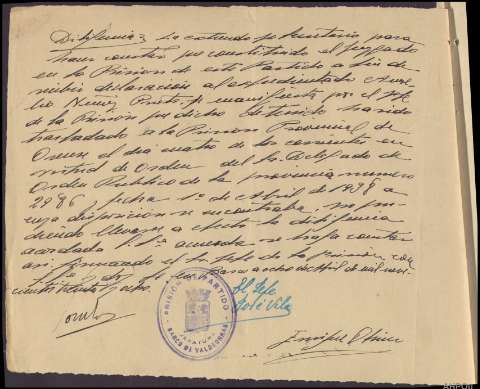 Diligencia; La extiendo yo Secretario para
hacer constar que constituido el Juzgado
en la Prision de este Partido a fin de
recibir declaración al expedientado Aure
lio Nuñez Prieto, se manifiesta por el Jefe
de la Prisión que dicho detenido ha sido
trasladado a la Prision Provincial de
Orense el dia cuatro de los corrientes en
virtud de Orden del Sr. Delegado de
Orden Publico de la provincia numero
2986, fecha 1º de Abril de 1938 a
cuya disposicion se encontraba, no pu
diendo llevarse a efecto la diligencia
acordada. Sª acuerda se haga constar
asi firmando el Sr. Jefe de la prisión con
Sª doy fe. Barco a ocho de Abril de mil nove
cientos treinta y ocho.
El Jefe
José Vila
PRISION DE PARTIDO
BARCO DE VALDEORRAS
AHPOU